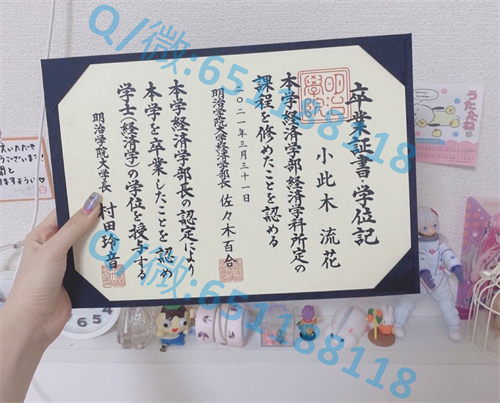 卒業証書・学位記
小此木 流花
本学経済学部経済学科所定の
課程を修めたことを認める
二〇二一年三月三十一日
明治学院大学経済学部長 佐々木百合
本学経済学部長の認定により
本学を卒業したことを認め
学士(経済学)の学位を授与する
明治学院大学長 村田玲音
うたたね
Q/微:651188118
Q/微:651188118